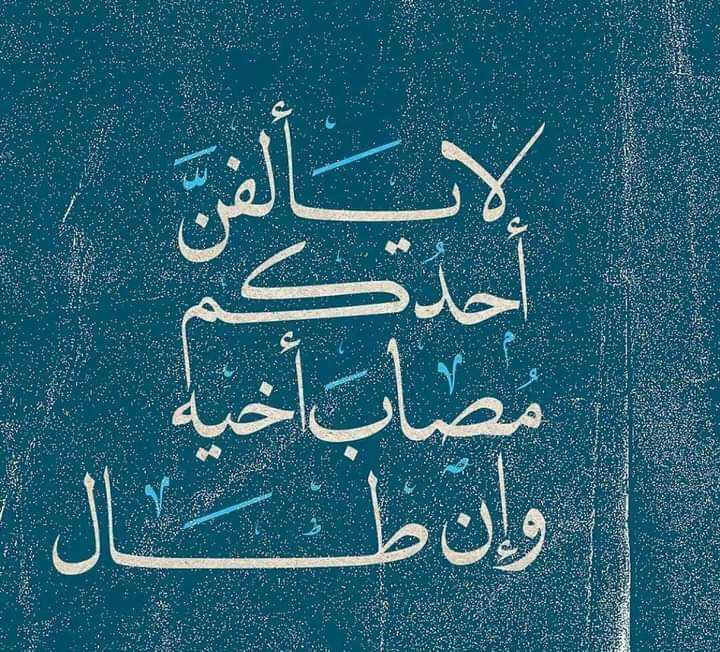 لا يألفنَّ
أحدُكم
مُصابَ أخيه
وإن طال